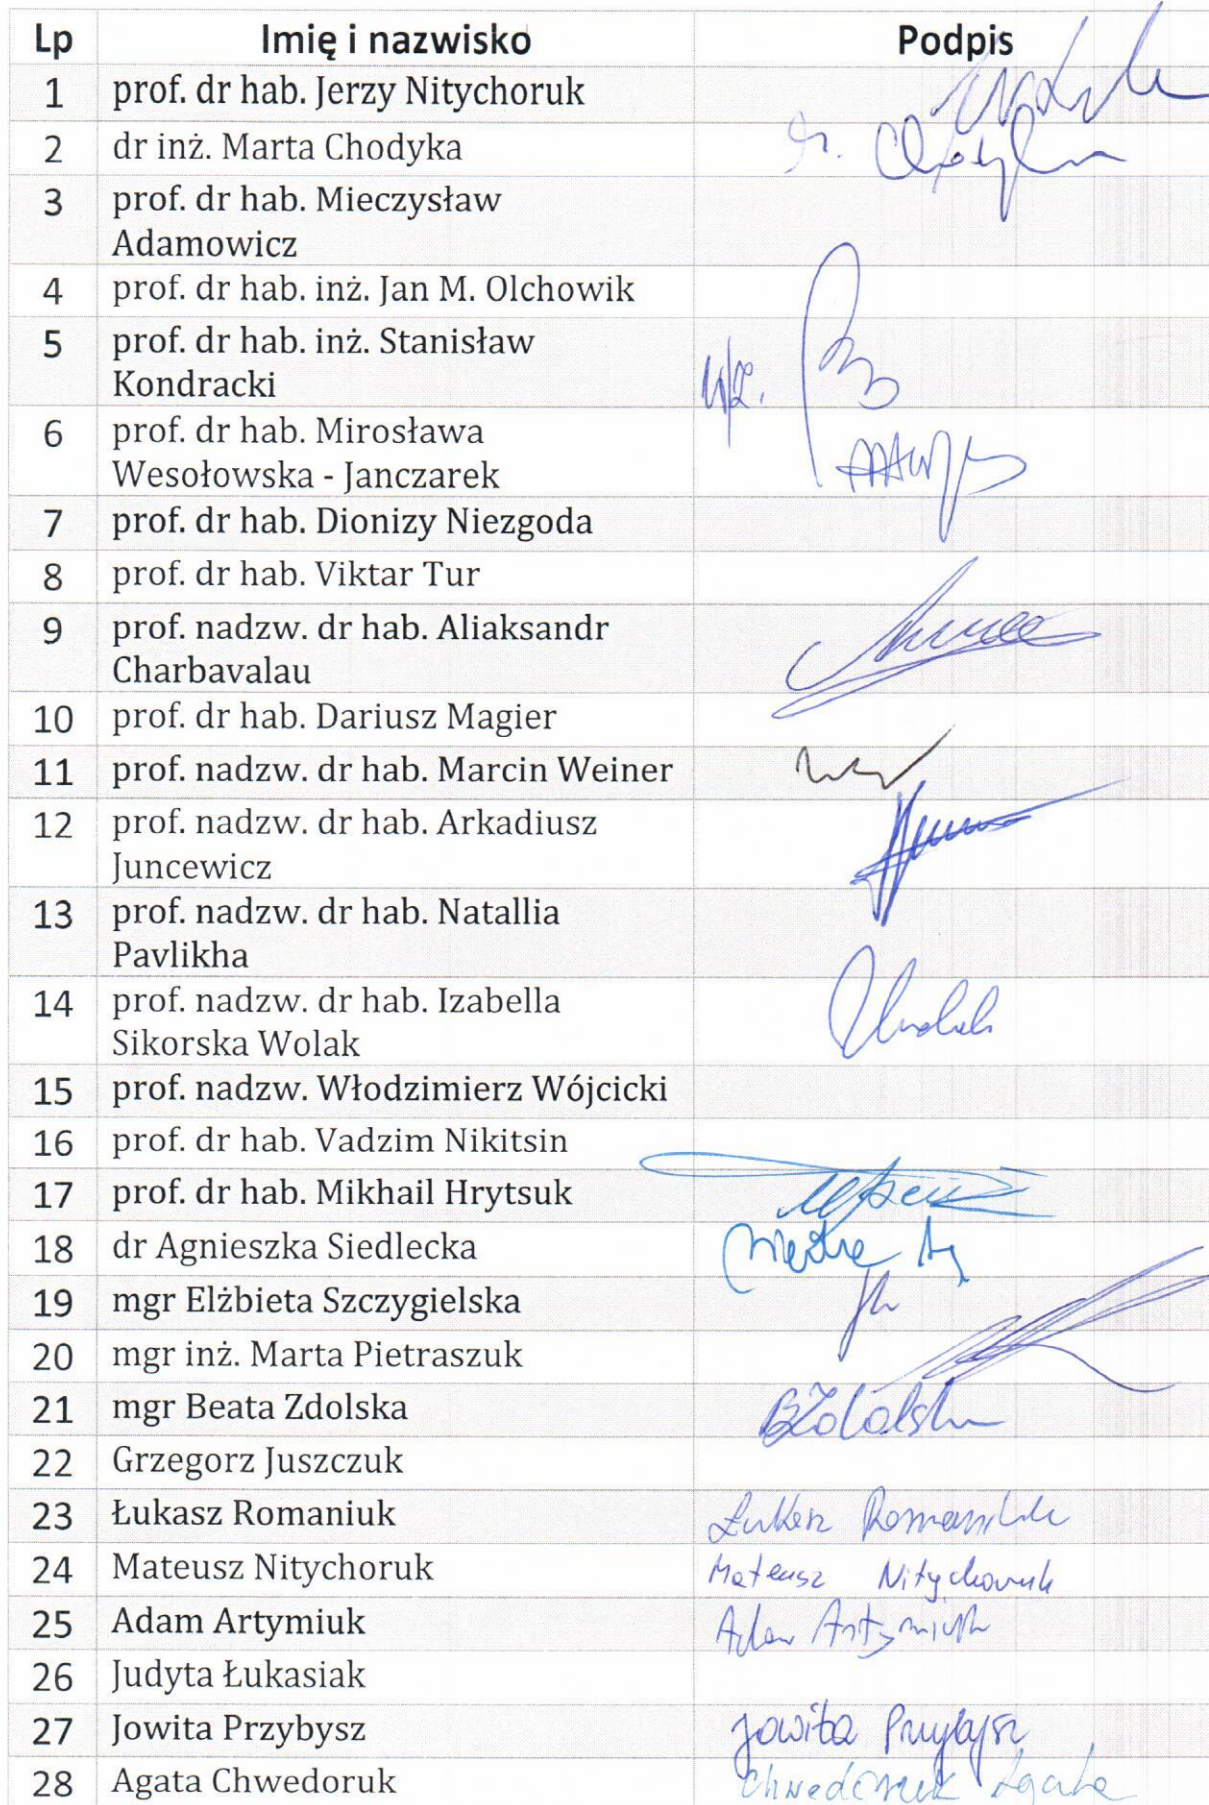 Lp Imię i nazwisko Podpis
1 prof. dr hab. Jerzy Nitychoruk
2 dr inż. Marta Chodyka
3 prof. dr hab. Mieczysław
Adamowicz
4 prof. dr hab. inż. Jan M. Olchowik
5 prof. dr hab. inż. Stanisław
Kondracki
6 prof. dr hab. Mirosława
Wesołowska - Janczarek
7 prof. dr hab. Dionizy Niezgoda
8 prof. dr hab. Viktar Tur
9 prof. nadzw. dr hab. Aliaksandr
Charbavalau
10 prof. dr hab. Dariusz Magier
11 prof. nadzw. dr hab. Marcin Weiner
12 prof. nadzw. dr hab. Arkadiusz
Juncewicz
13 prof. nadzw. dr hab. Natallia
Pavlikha
14 prof. nadzw. dr hab. Izabella
Sikorska Wolak
15 prof. nadzw. Włodzimierz Wójcicki
16 prof. dr hab. Vadzim Nikitsin
17 prof. dr hab. Mikhail Hrytsuk
18 dr Agnieszka Siedlecka
19 mgr Elżbieta Szczygielska
20 mgr inż. Marta Pietraszuk
21 mgr Beata Zdolska BZdolska
22 Grzegorz Juszczuk
23 Łukasz Romaniuk Łukasz Romaniuk
24 Mateusz Nitychoruk Mateusz Nitychoruk
25 Adam Artymiuk Adam Artymiuk
26 Judyta Łukasiak
27 Jowita Przybysz Jowita Przybysz
28 Agata Chwedoruk Chwedoruk Agata